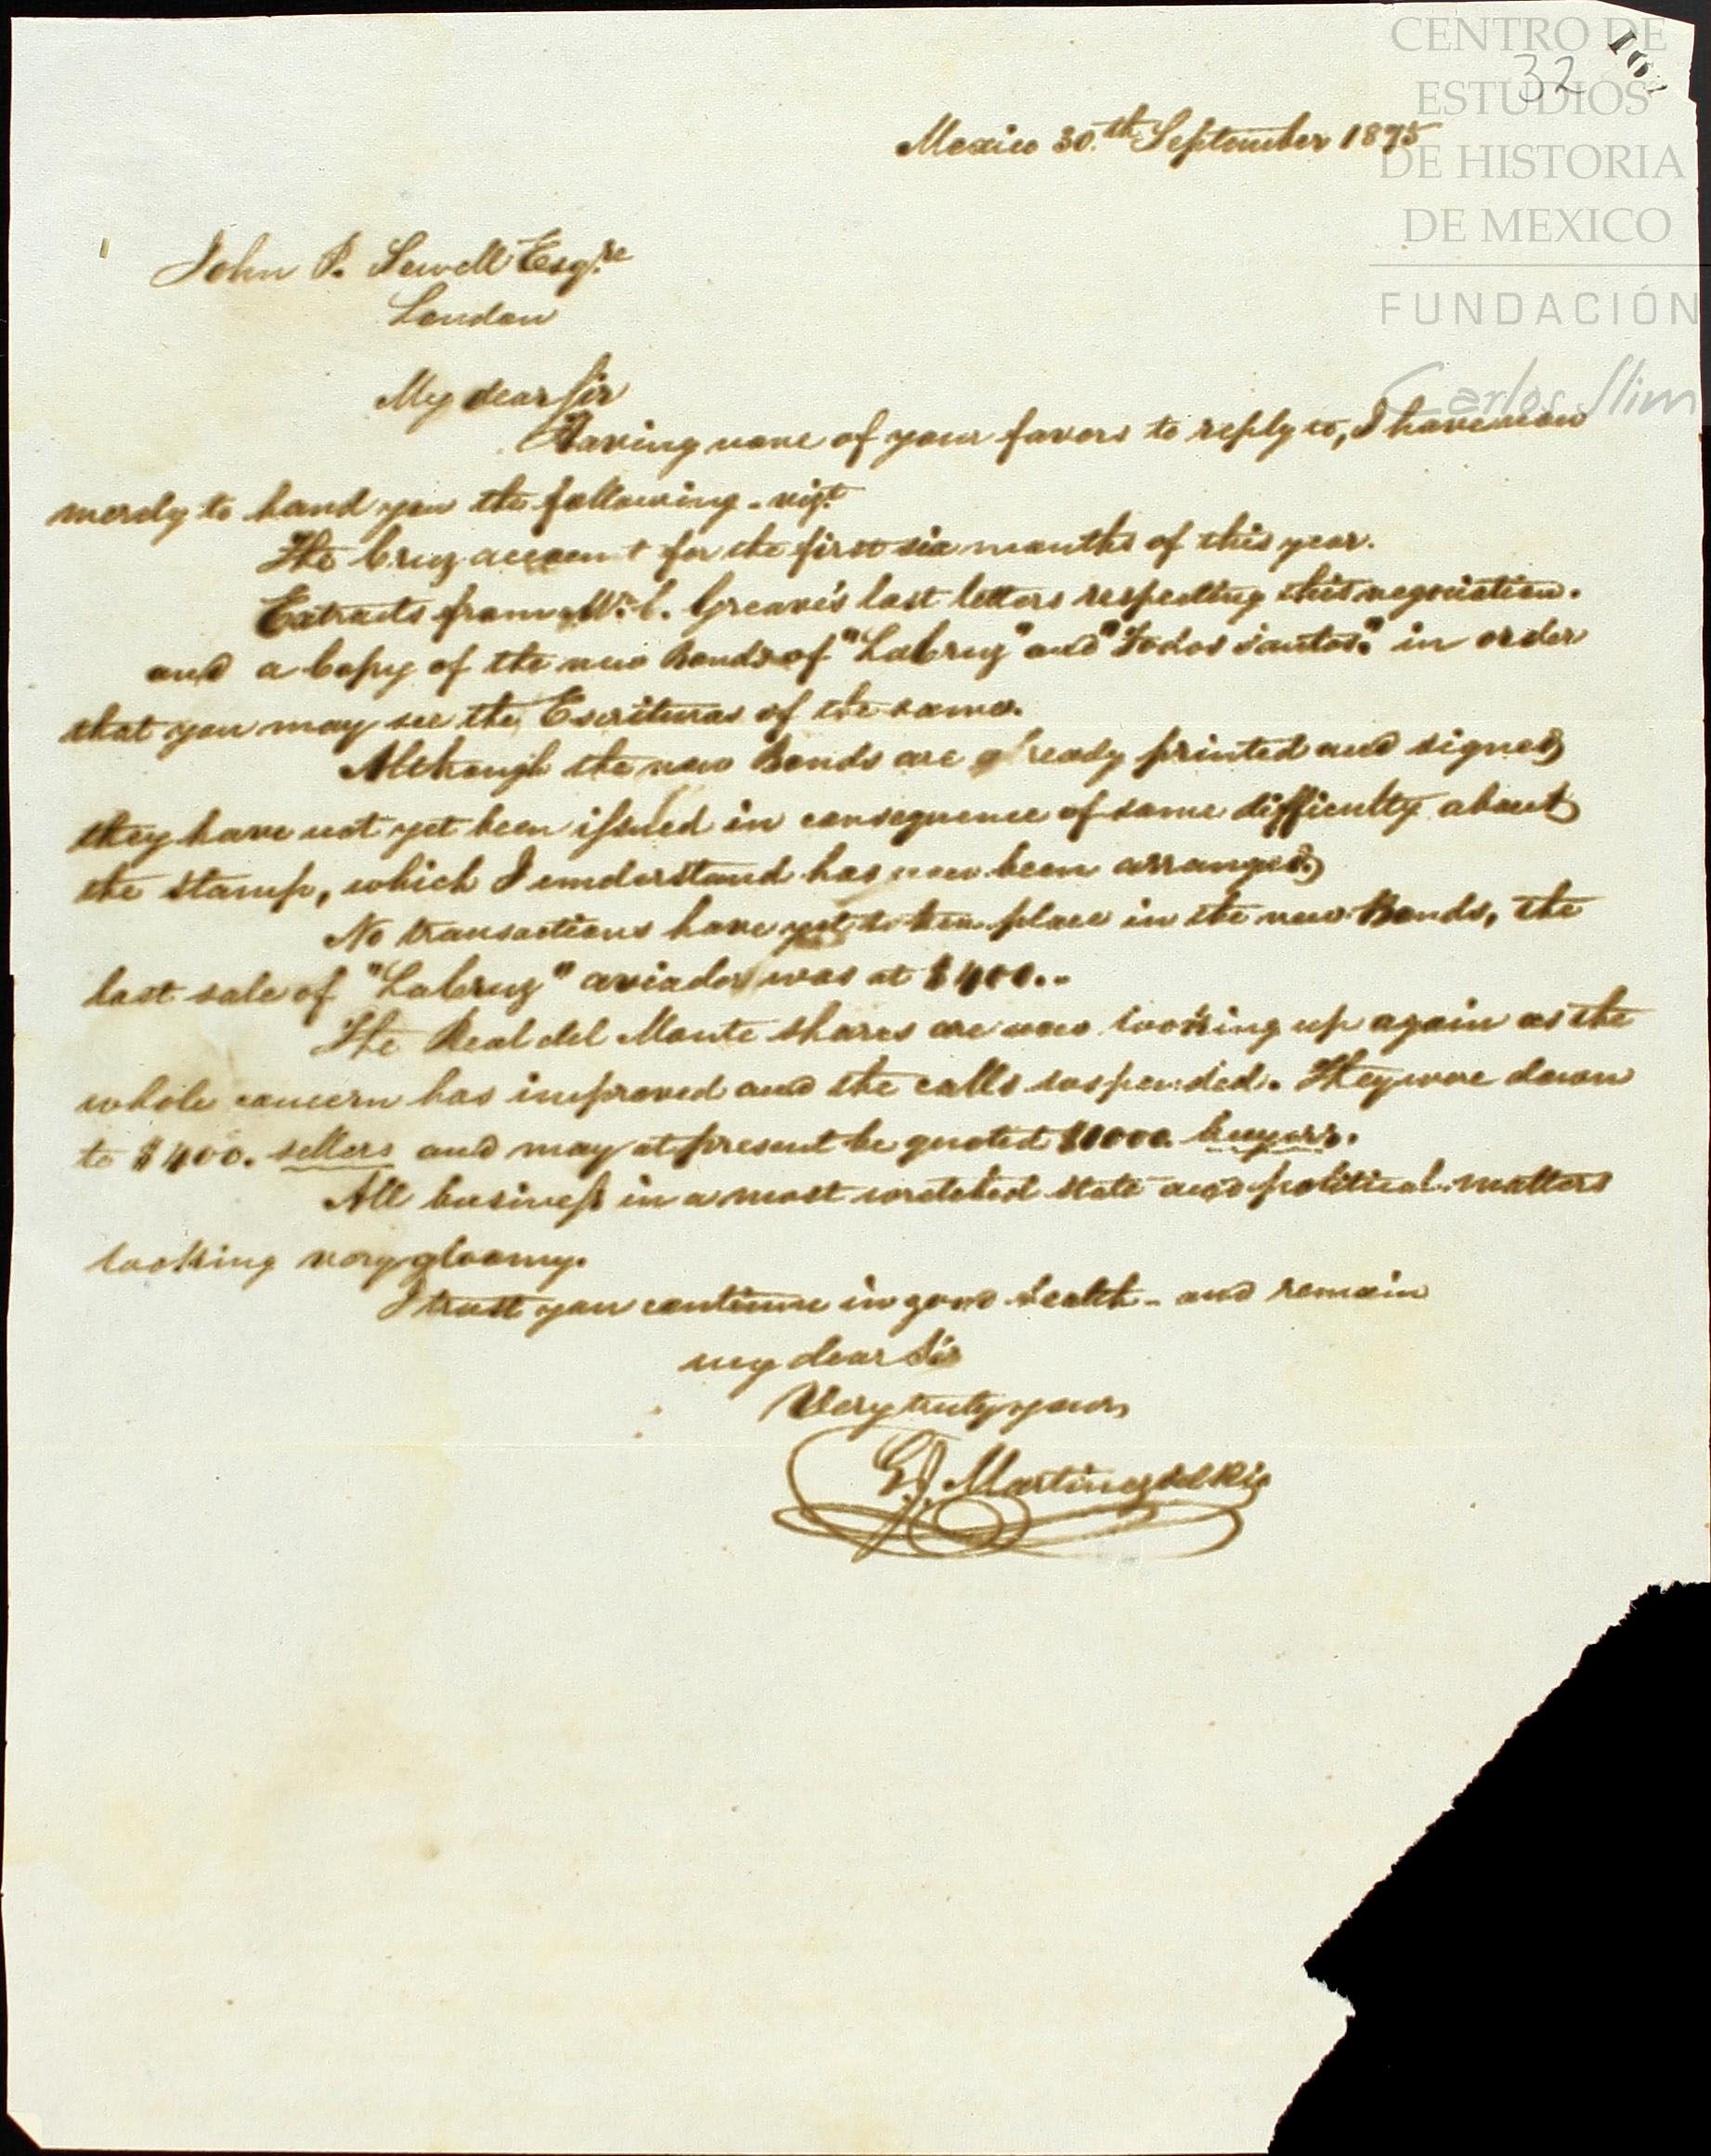 CENTRO DE
ESTUDIOS
DE HISTORIA
DE MEXICO
FUNDACIÓN
Carlos Slim
32
Mexico 30.th September 1875
John P. Sewell Esqre
London
My dear Sir
Having none of your favors to reply to, I have now
merely to hand you the following - vizt
The Cruz account for the first six months of this year.
Extracts from Mr. C. Greave's last letters respecting this negociation.
and a Copy of the new Bonds of "La Cruz" and "Todos Santos." in order
that you may see the Escrituras of the same.
Although the new Bonds are already printed and signed
they have not yet been issued in consequence of some difficulty about
the stamp, which I understand has now been arranged
No transactions have yet taken place in the new Bonds, the
last sale of "La Cruz" aviador was at $400..
The Real del Monte shares are now looking up again as the
whole concern has improved and the calls suspended. They were down
to $400. sellers and may at present be quoted $1000. buyers.
All business in a most wretched state and political matters
looking very gloomy.
I trust you continue in good health - and remain
my dear Sir
Very truly yours
G. J. Martinez del Rio